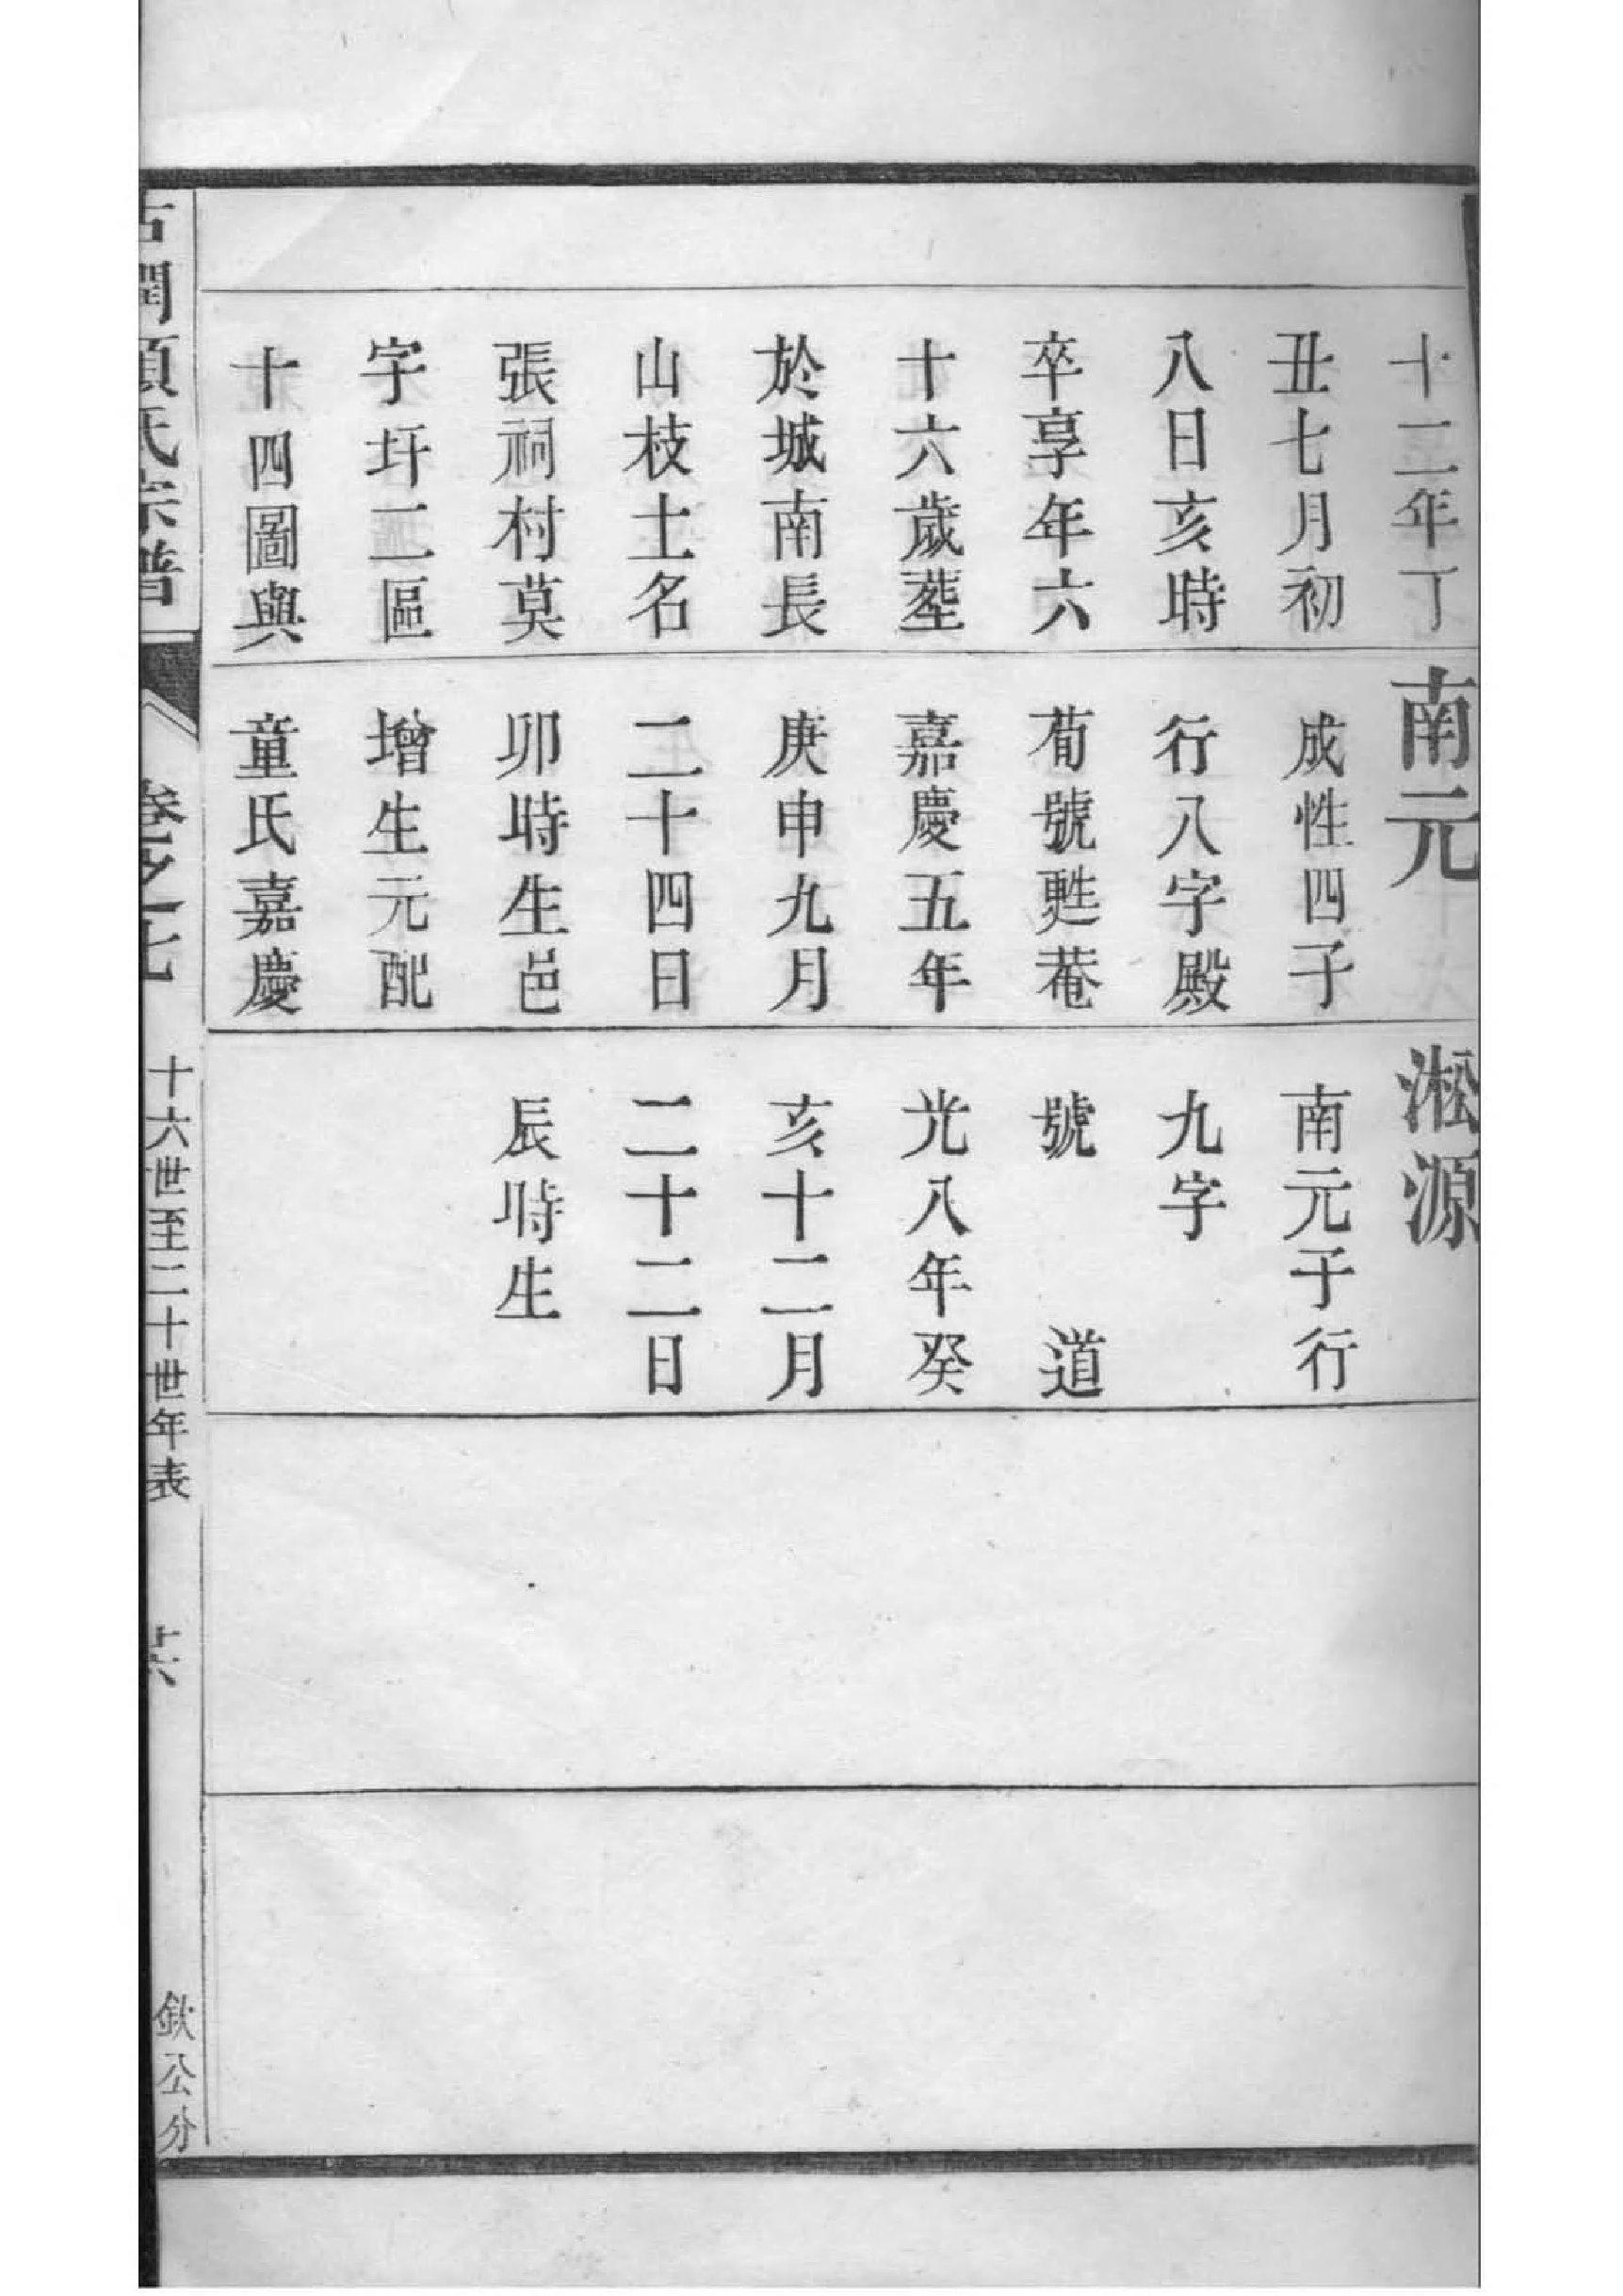 十二年丁
丑七月初
八日亥時
卒享年六
十六歲塟
於城南長
山枝土名
張祠村莫
字圩二區
十四圖與
南元
成性四子
行八字殿
荀號甦菴
嘉慶五年
庚申九月
二十四日
卯時生邑
增生元配
童氏嘉慶
淞源
南元子行
九字
號 道
光八年癸
亥十二月
二十二日
辰時生
古潤項氏宗譜
卷之七
十六世至二十世年表
廿六
欽公分